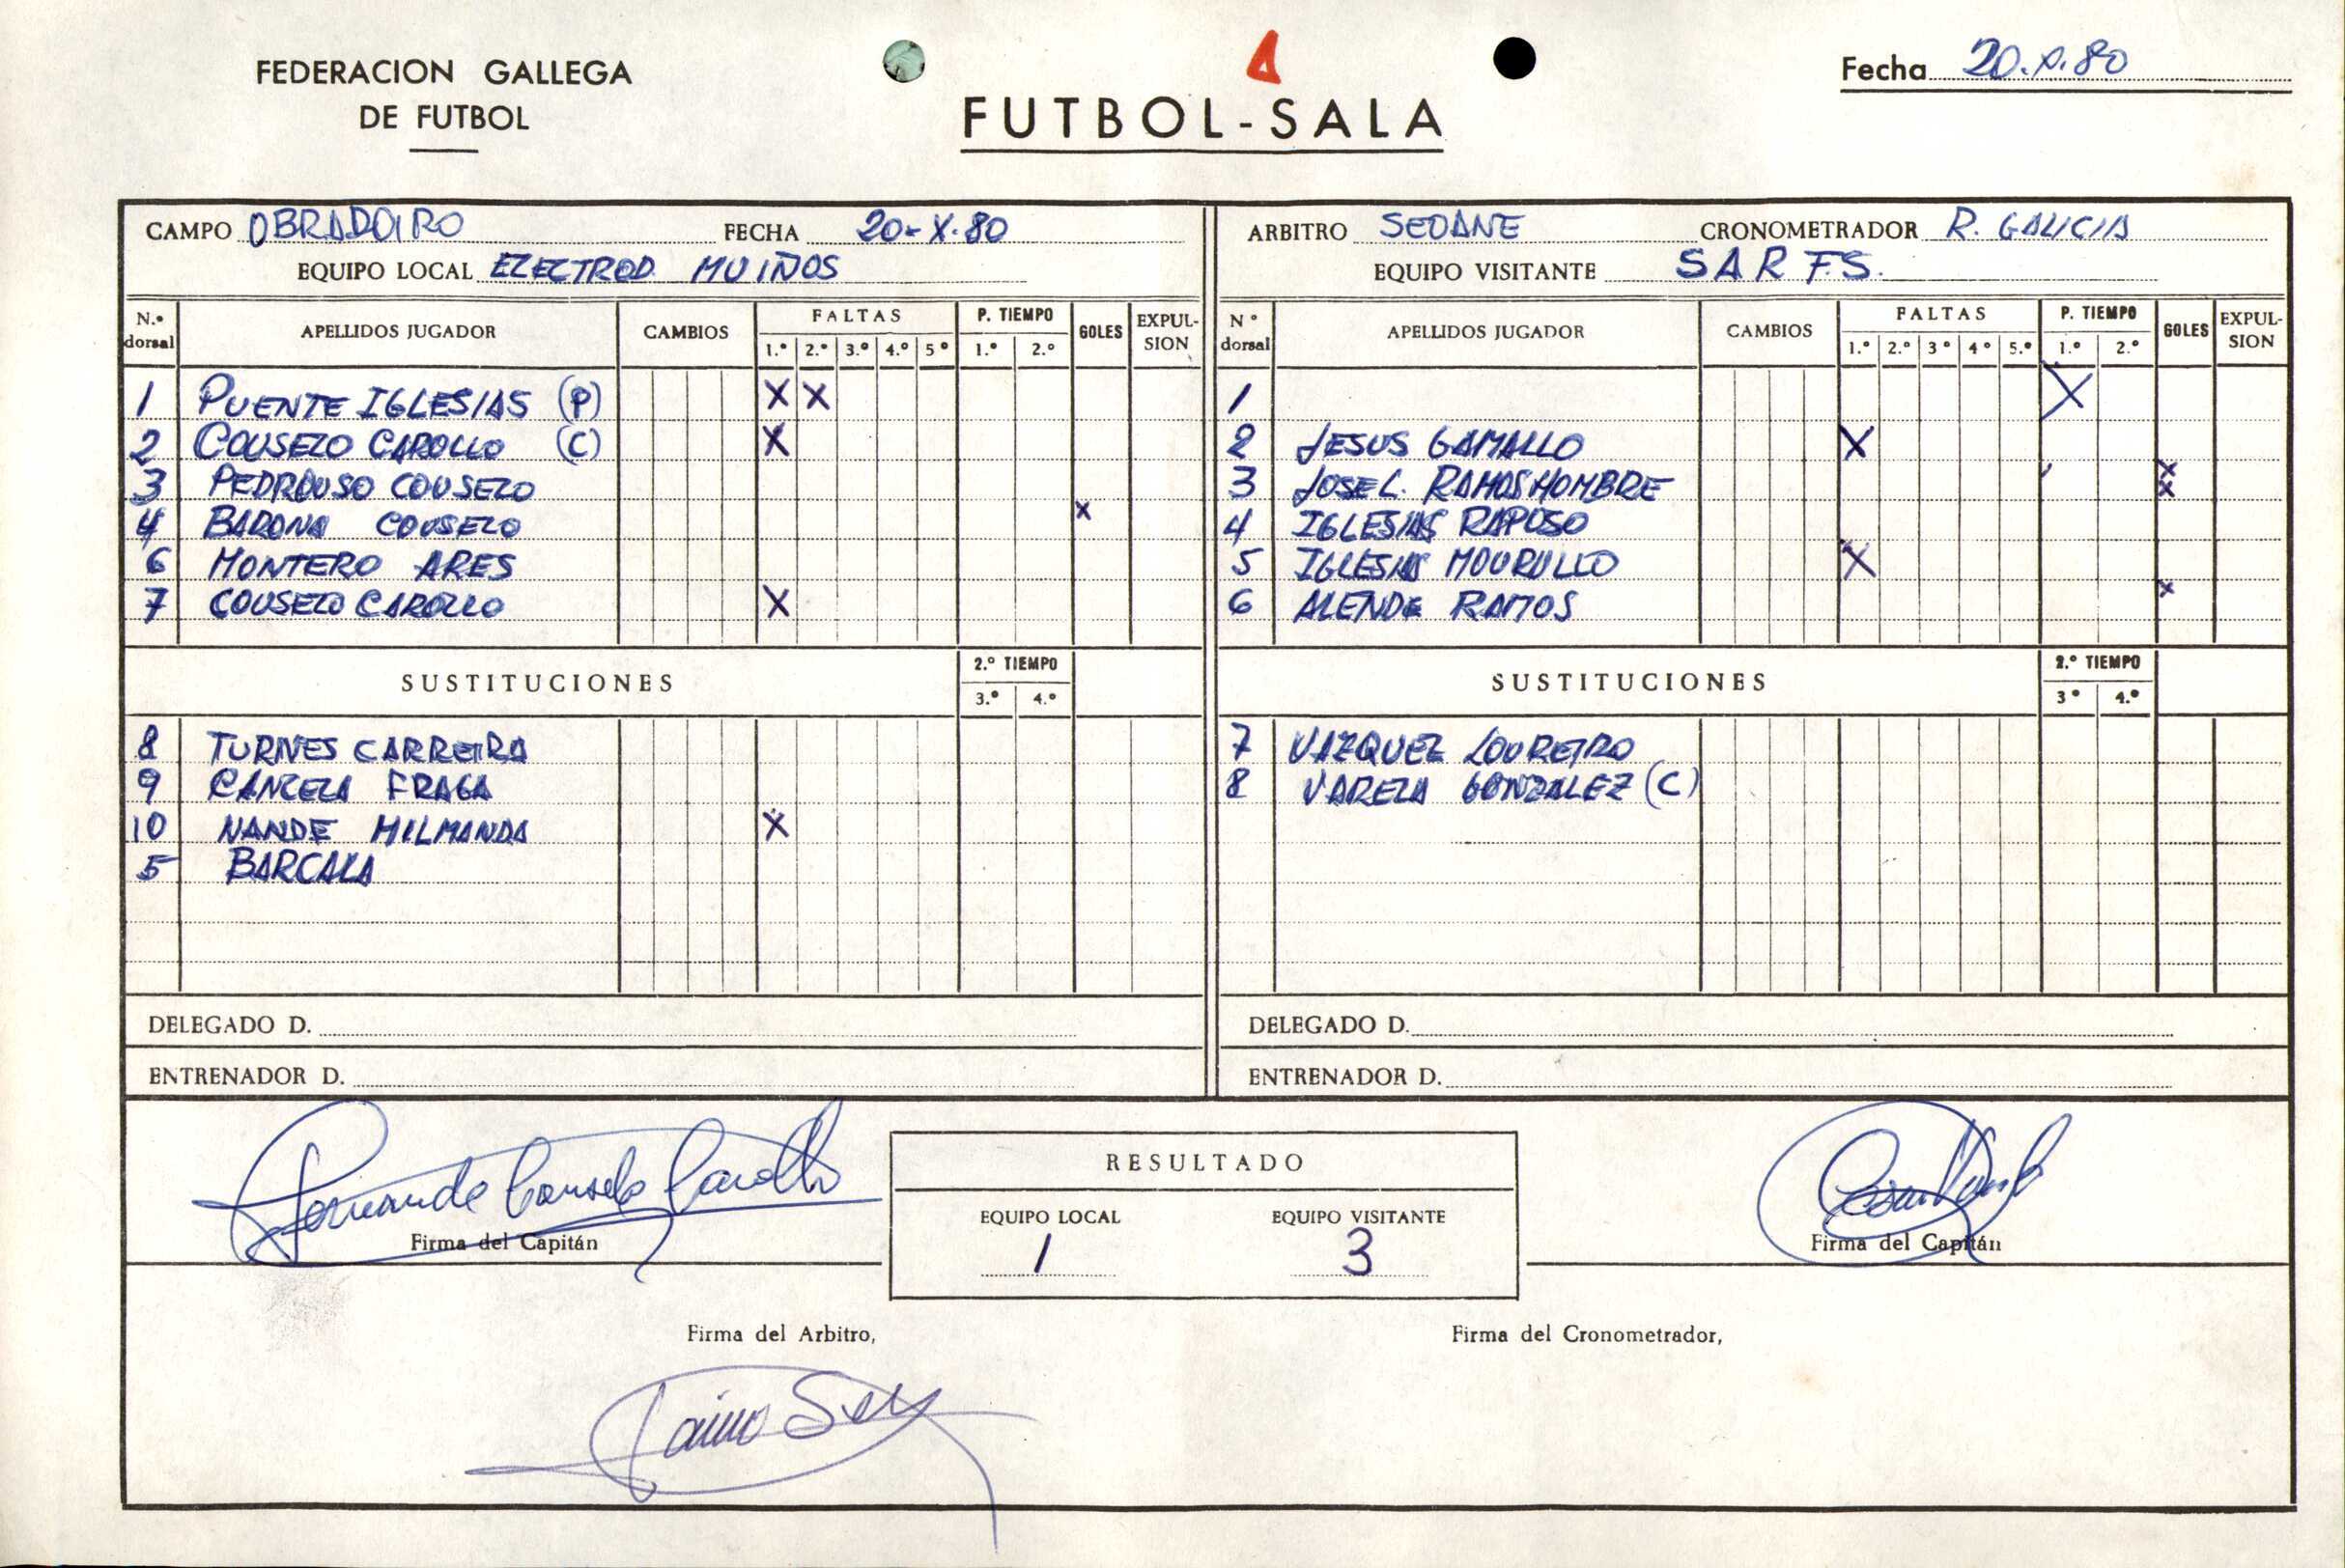 FEDERACION GALLEGA
DE FUTBOL
FUTBOL-SALA
Fecha 20.X.80
CAMPO OBRADOIRO FECHA 20-X-80
EQUIPO LOCAL ELECTROD. MUIÑOS
ARBITRO SEOANE CRONOMETRADOR R. GALICIA
EQUIPO VISITANTE SAR F.S.
N.º dorsal APELLIDOS JUGADOR CAMBIOS FALTAS 1.º 2.º 3.º 4.º 5º P. TIEMPO 1.º 2.º GOLES EXPULSION
1 PUENTE IGLESIAS (P) X X
2 COUSELO CAROLLO (C) X
3 PEDROUSO COUSELO
4 BARONA COUSELO X
6 MONTERO ARES
7 COUSELO CAROLLO X
SUSTITUCIONES 2.º TIEMPO 3.º 4.º
8 TURNES CARREIRA
9 CANCELA FRAGA
10 NANDE MILMANDA X
5 BARCALA
DELEGADO D.
ENTRENADOR D.
N º dorsal APELLIDOS JUGADOR CAMBIOS FALTAS 1.º 2.º 3º 4º 5.º P. TIEMPO 1.º 2.º GOLES EXPULSION
1 X
2 JESUS GAMALLO X
3 JOSE L. RAMOS HOMBRE X X
4 IGLESIAS RAPOSO
5 IGLESIAS MOURULLO X
6 ALENDE RAMOS X
SUSTITUCIONES 2.º TIEMPO 3º 4.º
7 VAZQUEZ LOUREIRO
8 VARELA GONZALEZ (C)
DELEGADO D.
ENTRENADOR D.
Fernando Couselo Carollo
Firma del Capitán
RESULTADO
EQUIPO LOCAL EQUIPO VISITANTE
1 3
Firma del Capitán
Firma del Arbitro,
Firma del Cronometrador,